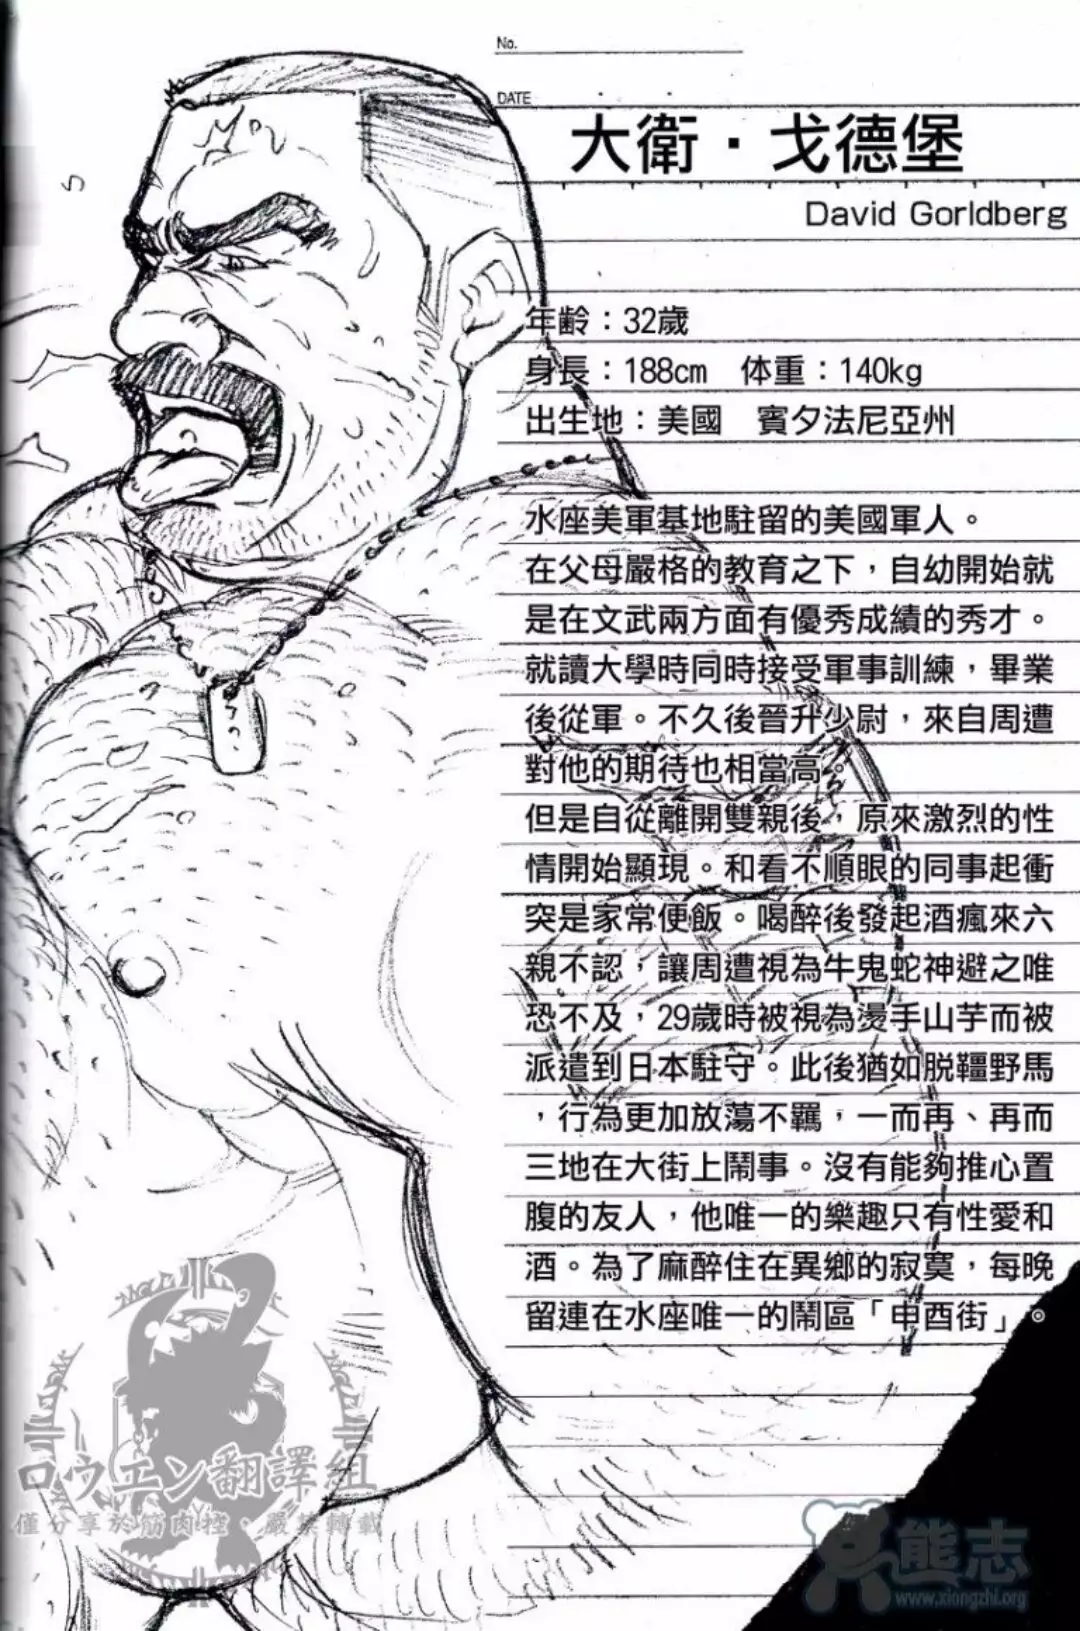 No.
DATE
大衛·戈德堡
David Gorldberg
年齡：32歲
身長：188cm 体重：140kg
出生地：美國 賓夕法尼亞州
水座美軍基地駐留的美國軍人。
在父母嚴格的教育之下，自幼開始就
是在文武兩方面有優秀成績的秀才。
就讀大學時同時接受軍事訓練，畢業
後從軍。不久後晉升少尉，來自周遭
對他的期待也相當高。
但是自從離開雙親後，原來激烈的性
情開始顯現。和看不順眼的同事起衝
突是家常便飯。喝醉後發起酒瘋來六
親不認，讓周遭視為牛鬼蛇神避之唯
恐不及，29歲時被視為燙手山芋而被
派遣到日本駐守。此後猶如脱韁野馬
，行為更加放蕩不羈，一而再、再而
三地在大街上鬧事。沒有能夠推心置
腹的友人，他唯一的樂趣只有性愛和
酒。為了麻醉住在異鄉的寂寞，每晚
留連在水座唯一的鬧區「申酉街」。
ロウエン翻譯組
僅分享於筋肉控、嚴禁轉載
熊志
www.xiongzhi.org